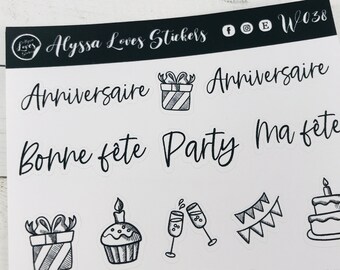 Alyssa Loves Stickers W038
Anniversaire Anniversaire
Bonne fête Party Ma fête